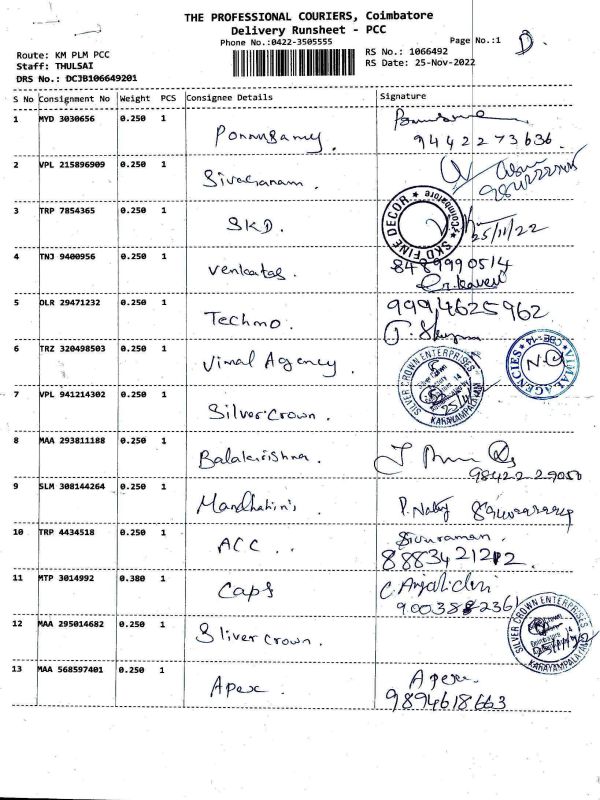 THE PROFESSIONAL COURIERS, Coimbatore
Delivery Runsheet - PCC
Phone No.:0422-3505555
Page No.:1
D.
Route: KM PLM PCC
RS No.: 1066492
Staff: THULSAI
RS Date: 25-Nov-2022
DRS No.: DCJB106649201
S No Consignment No Weight PCS Consignee Details Signature
1 MYD 3030656 0.250 1
Ponnusamy. 9442273636.
2 VPL 215896909 0.250 1
Sivaganam.
3 TRP 7854365 0.250 1
SKD. SKD FINE DECOR * Coimbatore * 25/11/22
4 TNJ 9400956 0.250 1
Venkatas. 8489990514
5 DLR 29471232 0.250 1 9994625962
Techno.
6 TRZ 320498503 0.250 1
Vimal Agency. VIMAL AGENCIES * CBE-14 *
7 VPL 941214302 0.250 1
Silver Crown. SILVER CROWN ENTERPRISES KARAYAMPALAYAM
8 MAA 293811188 0.250 1
Balakrishna. 98422 29050
9 SLM 308144264 0.250 1
P. Nataj
10 TRP 4434518 0.250 1 Sivuraman.
ACC .. 8883421212.
11 MTP 3014992 0.380 1
Caps 9003882361
12 MAA 295014682 0.250 1
Sliver crown. SILVER CROWN ENTERPRISES KARAYAMPALAYAM
13 MAA 568597401 0.250 1
Apex. Apex.
9894618663